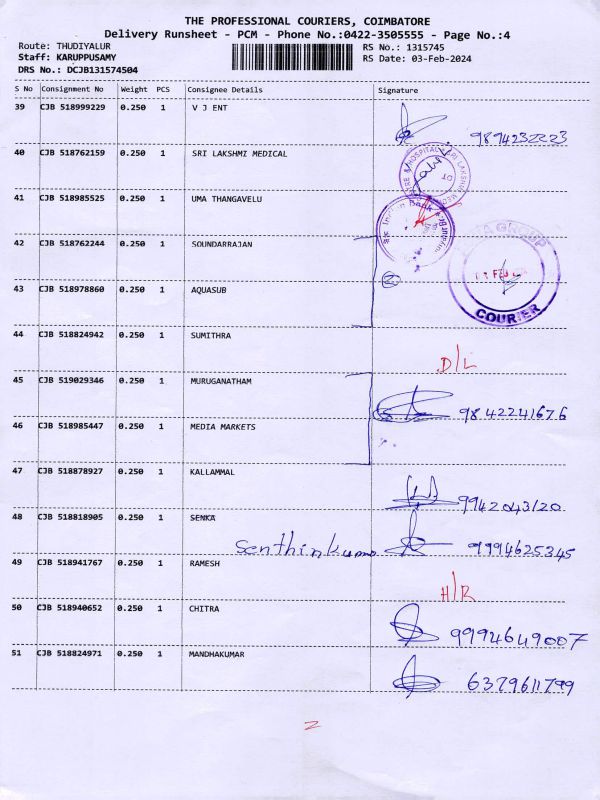 THE PROFESSIONAL COURIERS, COIMBATORE
Delivery Runsheet - PCM - Phone No.:0422-3505555 - Page No.:4
Route: THUDIYALUR
RS No.: 1315745
Staff: KARUPPUSAMY
RS Date: 03-Feb-2024
DRS No.: DCJB131574504
S No Consignment No Weight PCS Consignee Details Signature
39 CJB 518999229 0.250 1 V J ENT
9894232223
40 CJB 518762159 0.250 1 SRI LAKSHMI MEDICAL
HOSPITAL SRI LAKSHMI
41 CJB 518985525 0.250 1 UMA THANGAVELU
Bank
42 CJB 518762244 0.250 1 SOUNDARRAJAN
GROUP
43 CJB 518978860 0.250 1 AQUASUB
FEB
COURIER
44 CJB 518824942 0.250 1 SUMITHRA
D/L
45 CJB 519029346 0.250 1 MURUGANATHAM
9842241676
46 CJB 518985447 0.250 1 MEDIA MARKETS
47 CJB 518878927 0.250 1 KALLAMMAL
9942043120
48 CJB 518818905 0.250 1 SENKA
Senthinkumar 9994625345
49 CJB 518941767 0.250 1 RAMESH
H/R
50 CJB 518940652 0.250 1 CHITRA
9994649007
51 CJB 518824971 0.250 1 MANDHAKUMAR
6379611799